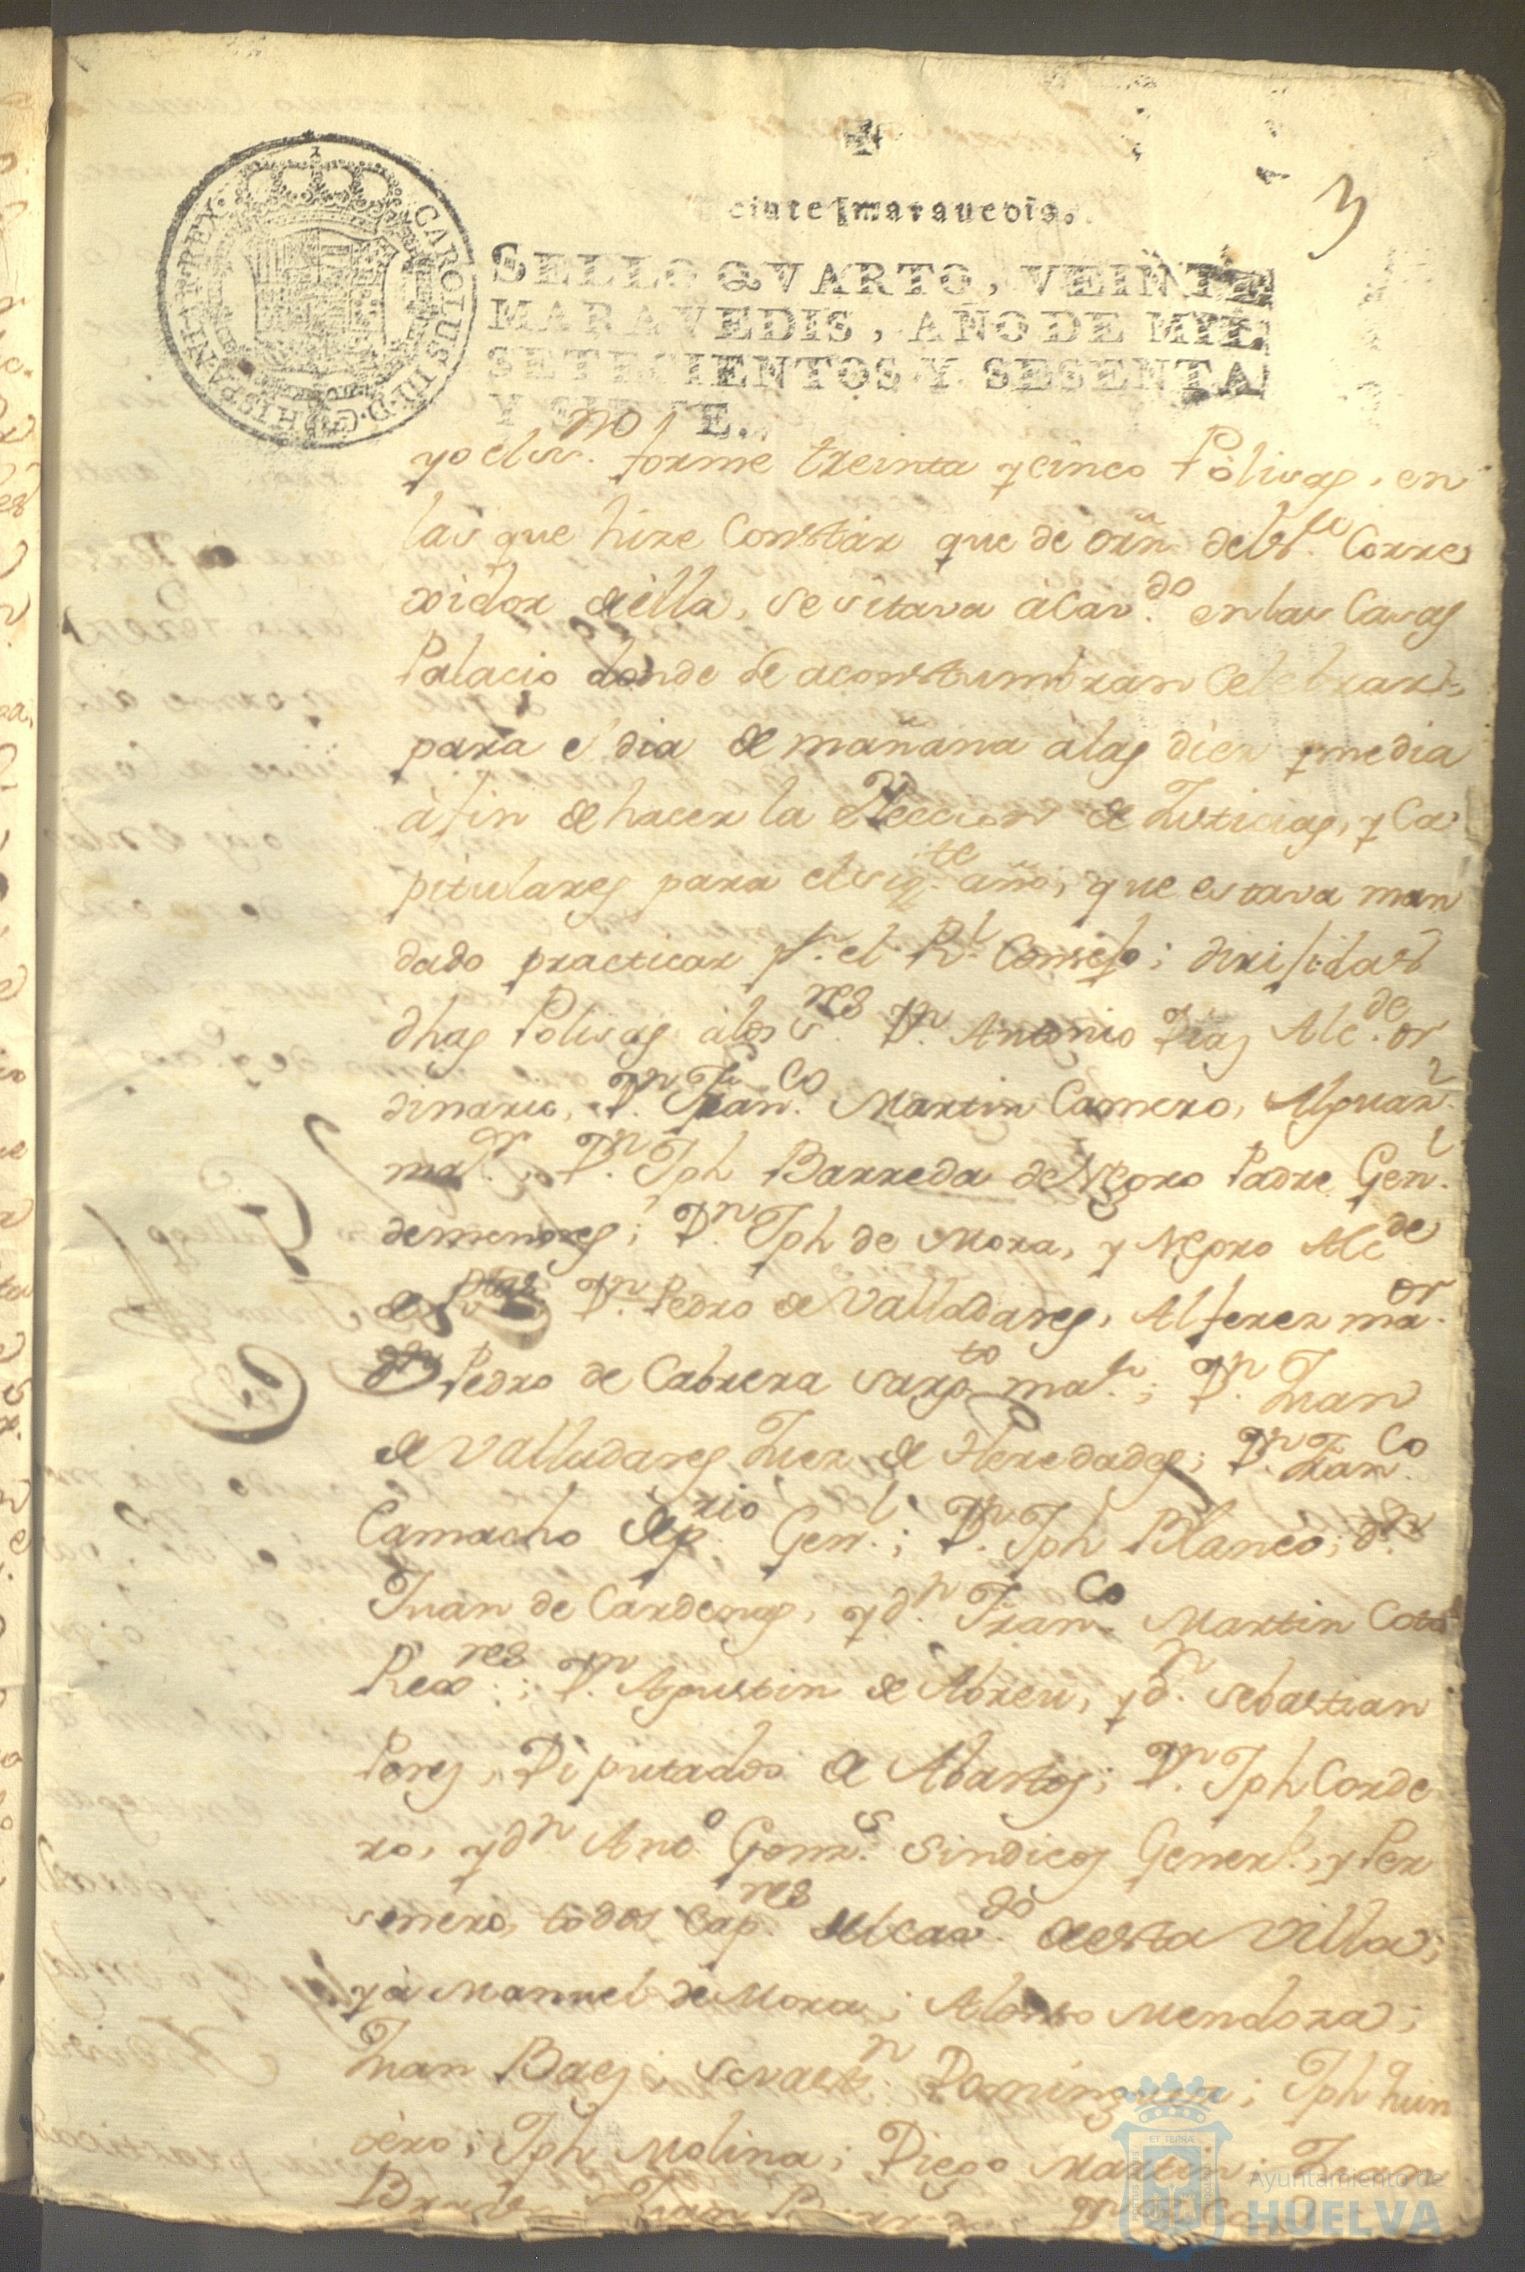 3
ciute maravedis.
CAROLUS III. D. G. HISPANIAR. REX.
SELLO QVARTO, VEINTE
MARAVEDIS, AÑO DE MIL
SETECIENTOS Y SESENTA
Y SIETE.
yo el ss.no forme treinta y cinco Polisas, en
las que hize Constar que de orñ del Corre
xidor de ella, se sitava à Cav.do en las Casas
Palacio donde se acostumbran Celebrar
para el dia de mañana a las diez y media
à fin de hacer la Eleccion de Justicias, y Ca
pitulares para el sig.te año, que estava man
dado practicar p.r el R.l Consejo; dirijidas
dhas Polisas à los s.res D.n Antonio Diaz Alc.de or
dinario, D.n Fran.co Martin Camero, Alguaz.l
ma.or; D.n Jph Barreda de Negro Padre Gen.l
de menores; D.n Jph de Mora, y Negro Alc.de
de D.n Pedro de Valladares, Alferez ma.or
D.n Pedro de Cabrera sarg.to ma.r; D.n Juan
de Valladares Juez de Heredades; D.n Fran.co
Camacho Dep.rio Gen.l; D.n Jph Blanco; d.n
Juan de Cardenas, y d.n Fran.co Martin Coto
Rex.res; D.n Agustin de Abreu, y d.n Sebastian
Perez, Diputados de Abastos; D.n Jph Corde
ro, y d.n Ant.o Gonz.s Sindicos Gener.l, y Per
sonero, todos Cap.res del Cav.do de esta Villa;
y à Manuel de Mora; Alonso Mendoza;
Juan Baez; Sevast.n Dominguez; Jph Quin
tero; Jph Molina; Diego Martin; Juan
Juan
ET TERRÆ
Ayuntamiento de
HUELVA